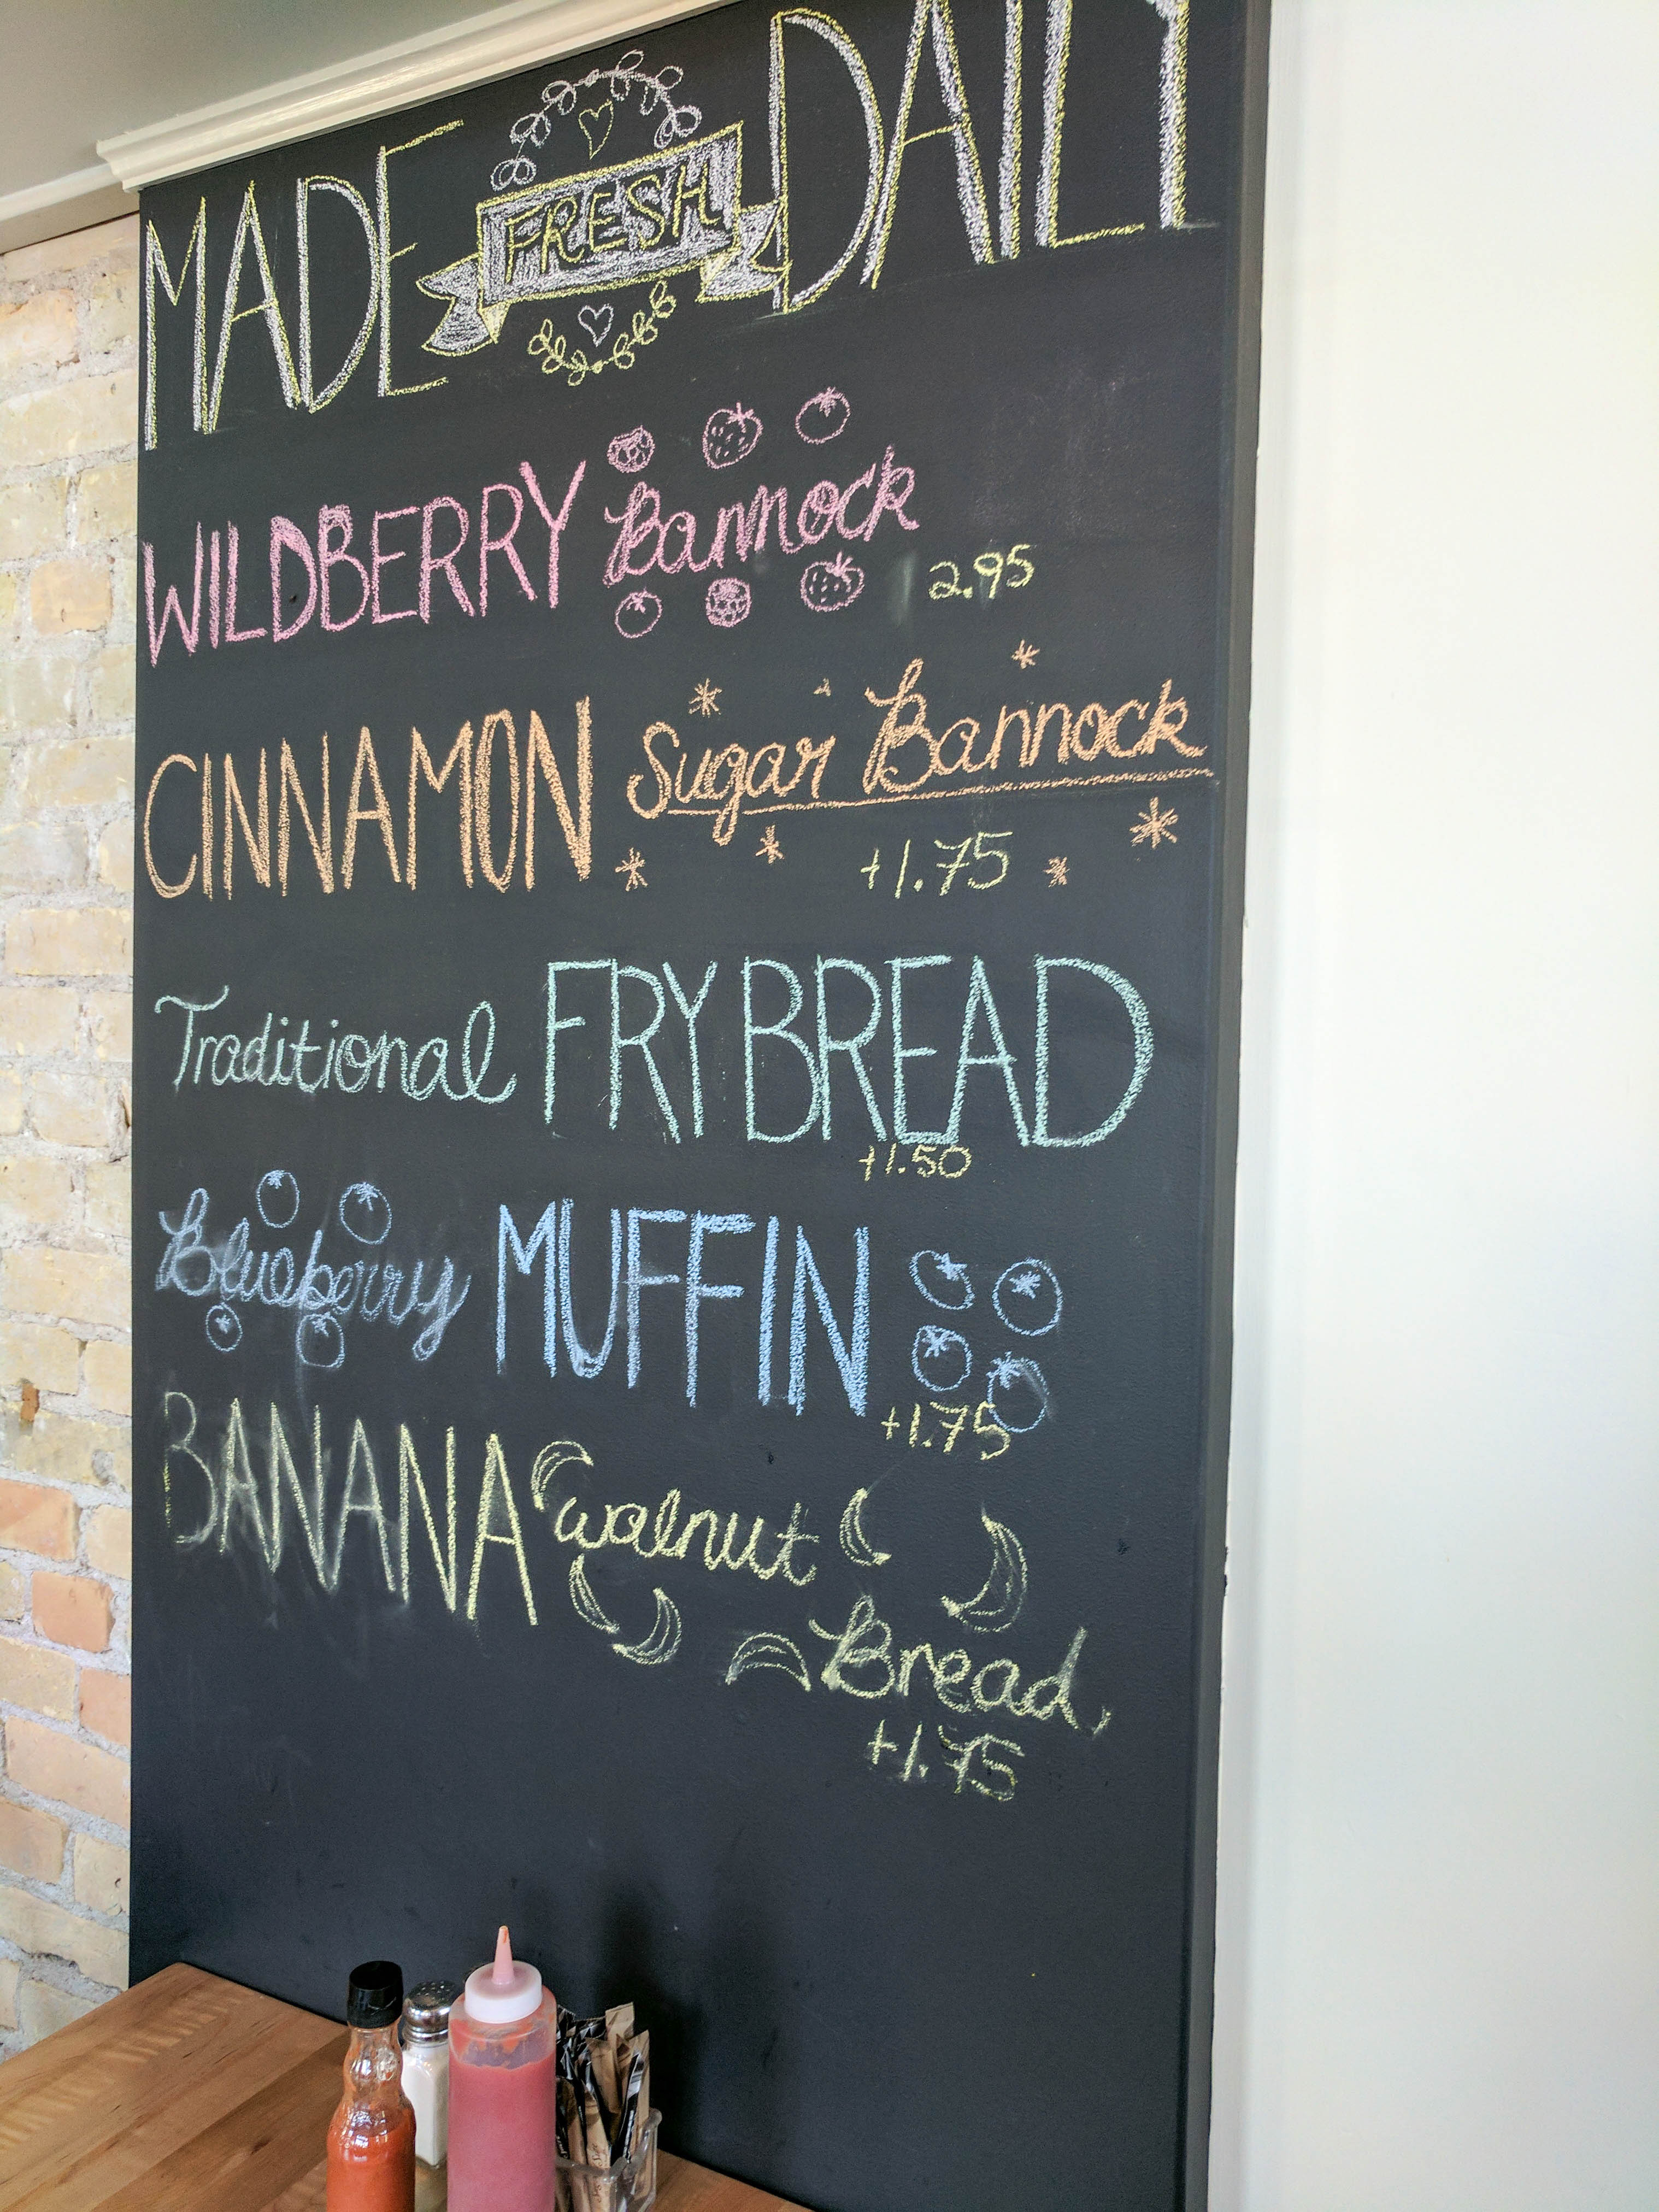 MADE FRESH DAILY
WILDBERRY Bannock
2.95
CINNAMON Sugar Bannock
+1.75
Traditional FRYBREAD
+1.50
Blueberry MUFFIN
+1.75
BANANA walnut
Bread
+1.75